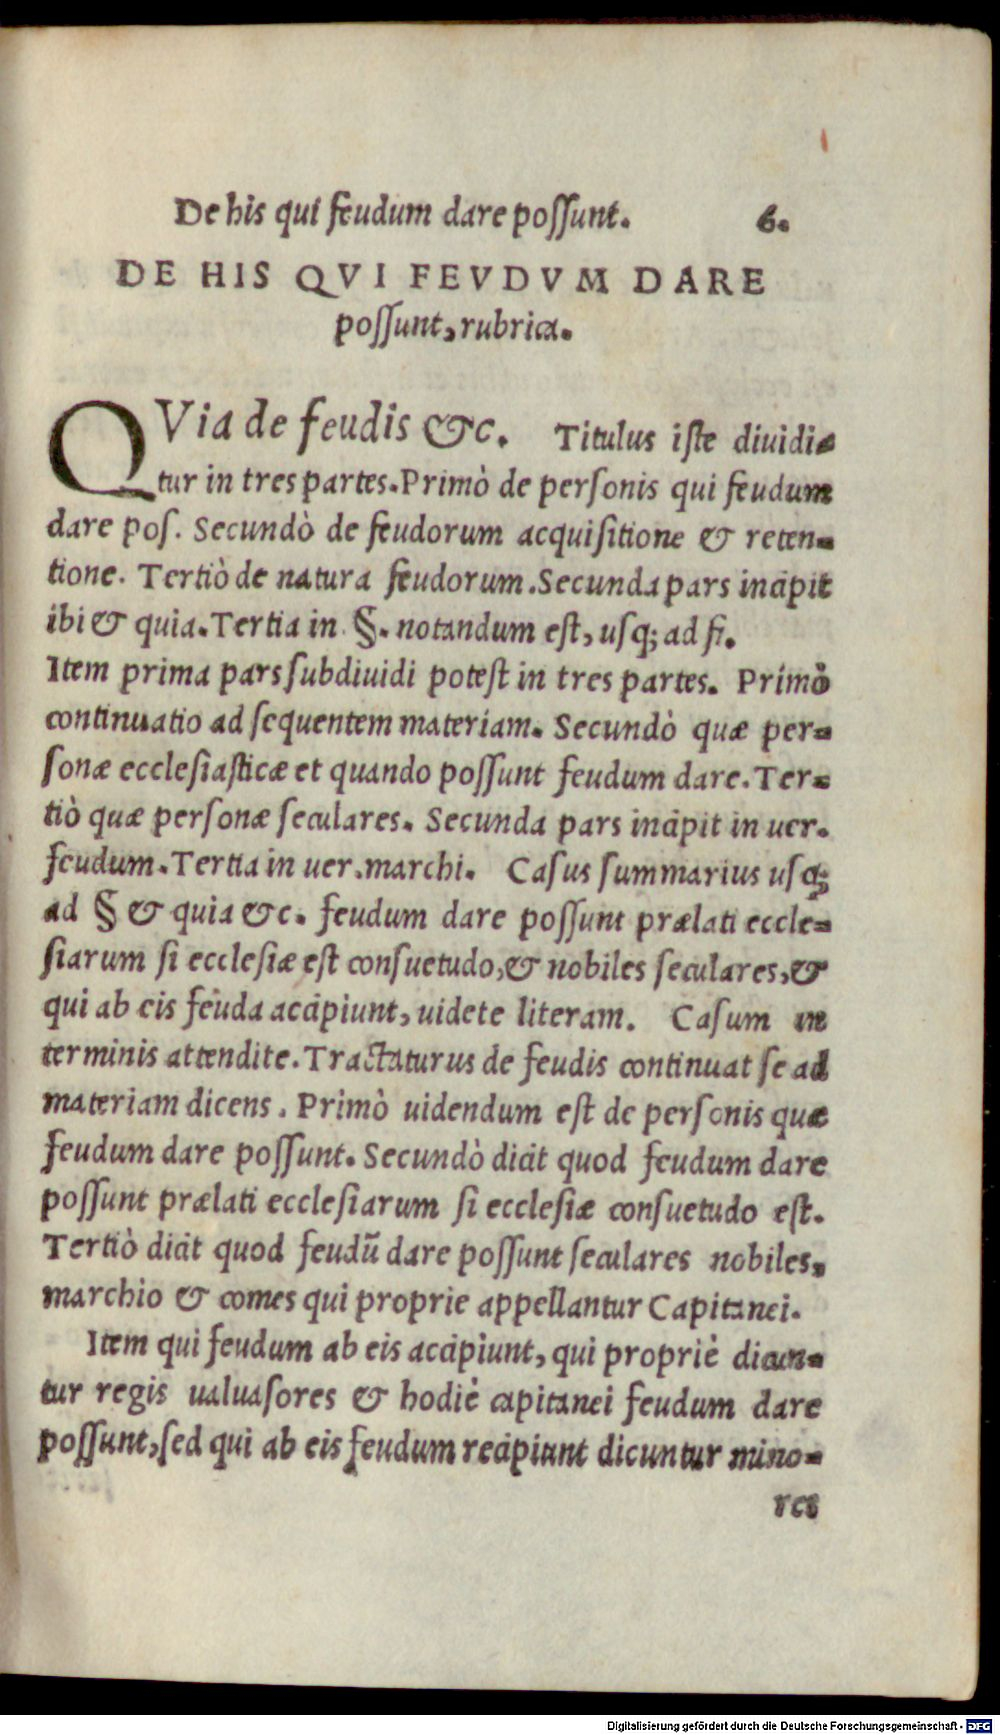 De his qui feudum dare poſſunt. 6.
DE HIS QVI FEVDVM DARE
poſſunt, rubrica.
QVia de feudis &c. Titulus iſte diuidi-
tur in tres partes. Primò de perſonis qui feudum
dare poſ. Secundò de feudorum acquiſitione & reten-
tione. Tertiò de natura feudorum. Secunda pars incipit
ibi & quia. Tertia in §. notandum eſt, uſq; ad fi.
Item prima pars ſubdiuidi poteſt in tres partes. Primò
continuatio ad ſequentem materiam. Secundò quæ per-
ſonæ eccleſiaſticæ et quando poſſunt feudum dare. Ter-
tiò quæ perſonæ ſeculares. Secunda pars incipit in uer.
feudum. Tertia in uer. marchi. Caſus ſummarius uſq;
ad § & quia &c. feudum dare poſſunt prælati eccle-
ſiarum ſi eccleſiæ eſt conſuetudo, & nobiles ſeculares, &
qui ab eis feuda accipiunt, uidete literam. Caſum in
terminis attendite. Tractaturus de feudis continuat ſe ad
materiam dicens. Primò uidendum eſt de perſonis quæ
feudum dare poſſunt. Secundò dicit quod feudum dare
poſſunt prælati eccleſiarum ſi eccleſiæ conſuetudo eſt.
Tertiò dicit quod feudū dare poſſunt ſeculares nobiles,
marchio & comes qui proprie appellantur Capitanei.
Item qui feudum ab eis accipiunt, qui propriè dicun-
tur regis ualuaſores & hodiè capitanei feudum dare
poſſunt, ſed qui ab eis feudum recipiunt dicuntur mino-
res
Digitalisierung gefördert durch die Deutsche Forschungsgemeinschaft - DFG